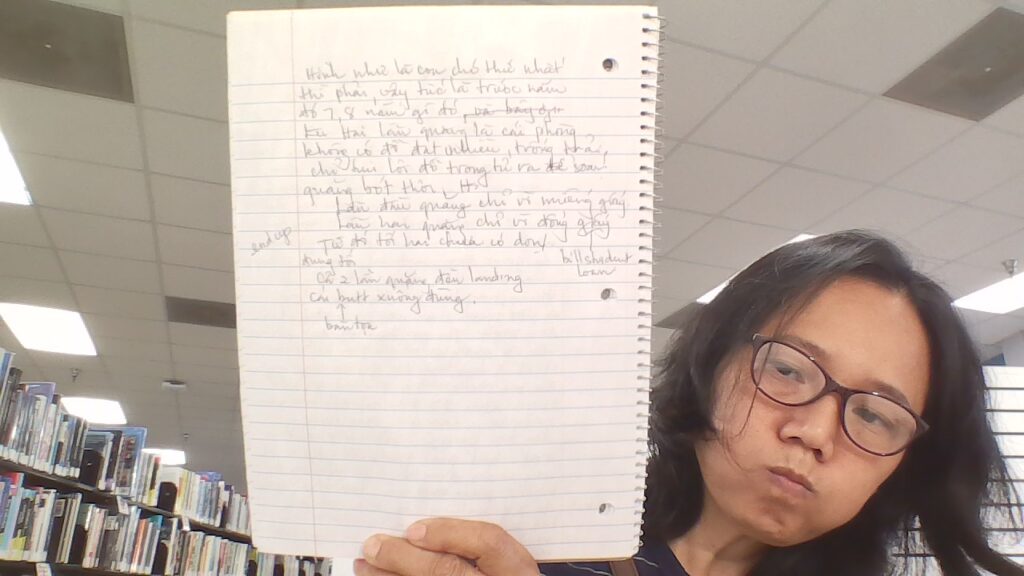 Hình như là con chó thứ nhất
thì phải, vậy tức là trước năm
đó 7, 8 năm gì đó,
lần hai lần quăng là cái phòng
không có đồ đạt nhiều, trống trải,
chỉ hụi lôi đồ trong tủ ra để
quăng bớt thôi,
Lần đầu quăng chỉ vì miếng giấy
Lần hai quăng chỉ vì đống giấy
Từ đó tới hai chưa có dọn,
end up
đụng tới
bill student
Loan
Cả 2 lần quăng đều landing
cái butt xuống đụng,
bàn tọa